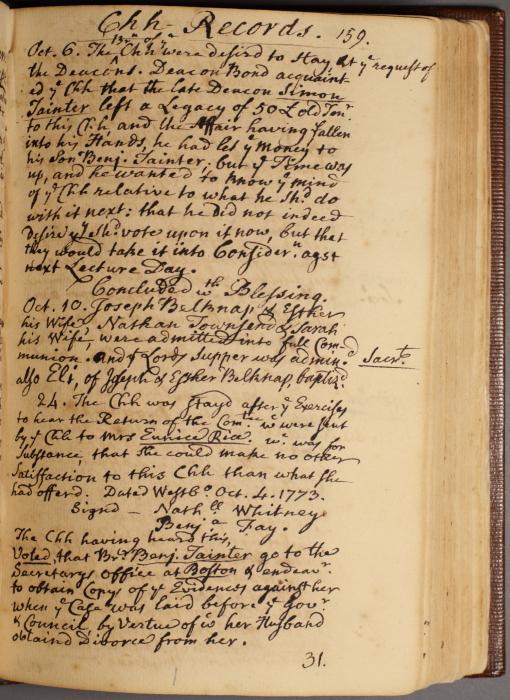 Chh Records. 159.
Oct. 6. The Brn of ye Chh were desird to Stay at ye request of
the Deacons. Deacon Bond acquaint
ed ye Chh that the late Deacon Simon
Tainter left a Legacy of 50£ old Tenr
to this Chh, and the Affair having fallen
into his Hands, he had let ye Money to
his Son Benj. Tainter; but ye Time was
up, and he wanted to know ye mind
of ye Chh relative to what he Shd do
with it next: that he did not indeed
desire yy Shd vote upon it now, but that
they would take it into Considern agst
next Lecture Day.
Concluded wth Blessing.
Oct. 10. Joseph Belknap & Esther
his Wife, Nathan Townsend & Sarah
his Wife, were admitted into full Com-
munion. and ye Lords Supper was admind Sacrt.
also Eli, of Joseph & Esther Belknap, baptizd
24. The Chh was Stayd after ye Exercises
to hear the Return of the Comtee wc were Sent
by ye Chh to Mrs Eunice Rice. wc was for
Substance, that She could make no other
Satisfaction to this Chh than what She
had offerd. Dated Westbo Oct. 4. 1773.
Signd — Nathll Whitney
Benja Fay.
The Chh having heard this,
Voted, that Br. Benj. Tainter go to the
Secretarys Office at Boston & endeavr
to obtain Copys of ye Evidences against her
when ye Case was laid before ye Govr
& Council, by Vertue of wc her Husband
obtaind Divorce from her.
31.